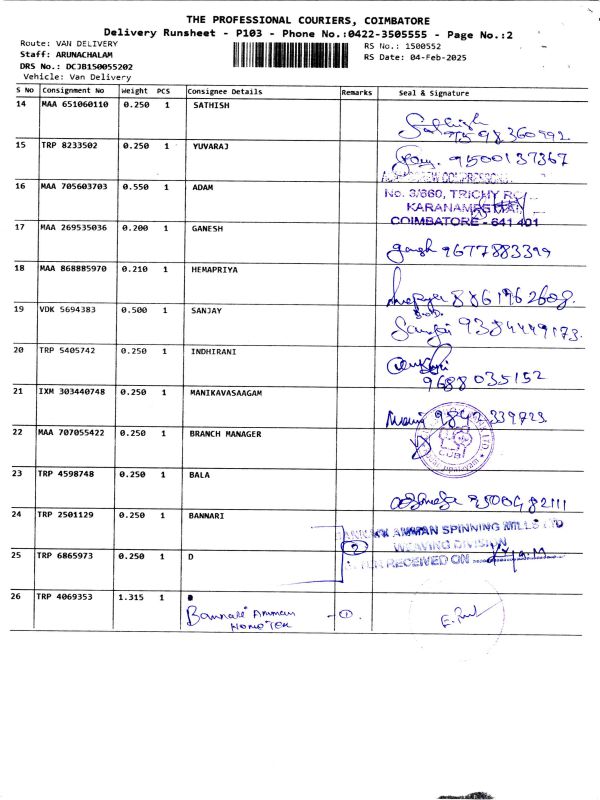 THE PROFESSIONAL COURIERS, COIMBATORE
Delivery Runsheet - P103 - Phone No.:0422-3505555 - Page No.:2
Route: VAN DELIVERY
RS No.: 1500552
Staff: ARUNACHALAM
RS Date: 04-Feb-2025
DRS No.: DCJB150055202
Vehicle: Van Delivery
S No Consignment No Weight PCS Consignee Details Remarks Seal & Signature
14 MAA 651060110 0.250 1 SATHISH
98360992
15 TRP 8233502 0.250 1 YUVARAJ
9500137367
16 MAA 705603703 0.550 1 ADAM
No. 3/660, TRICHY
COIMBATORE - 641 401
17 MAA 269535036 0.200 1 GANESH
9677883399
18 MAA 868885970 0.210 1 HEMAPRIYA
19 VDK 5694383 0.500 1 SANJAY
9384449173
20 TRP 5405742 0.250 1 INDHIRANI
9688035152
21 IXM 303440748 0.250 1 MANIKAVASAAGAM
22 MAA 707055422 0.250 1 BRANCH MANAGER
23 TRP 4598748 0.250 1 BALA
24 TRP 2501129 0.250 1 BANNARI
AMMAN SPINNING MILLS LTD
WEAVING DIVISION
25 TRP 6865973 0.250 1 D
2
RECEIVED ON
26 TRP 4069353 1.315 1
Bannari Amman
1